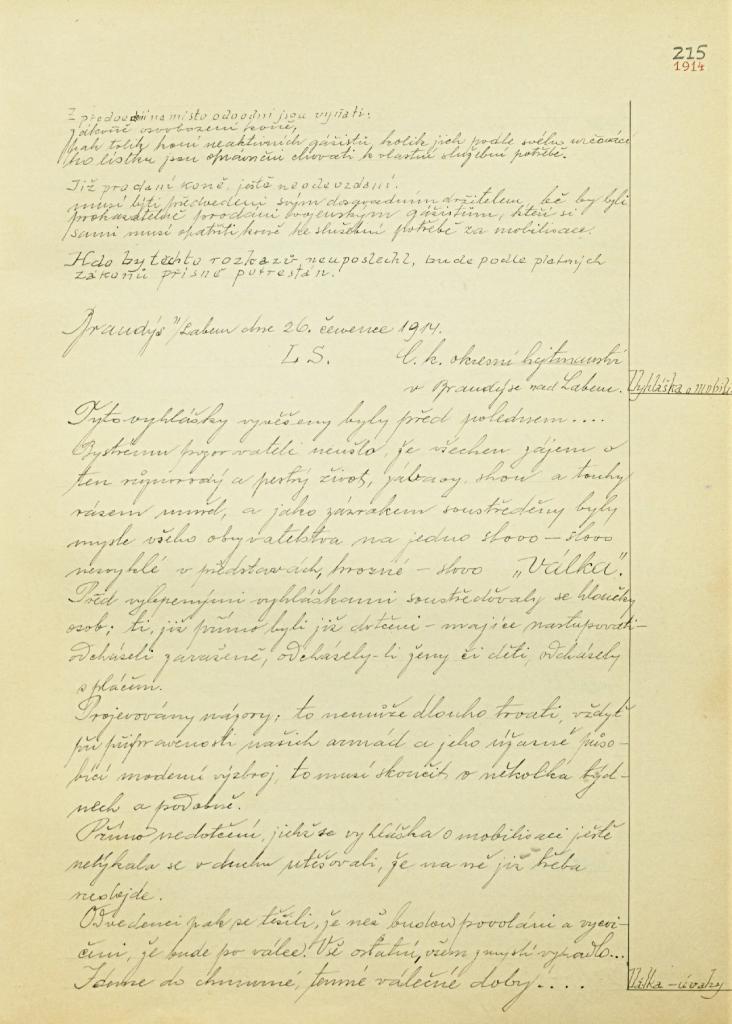 215
1914
Z předvedení na místo odvodní jsou vyňati:
zákonně osvobození koně,
pak tolik koní neaktivních gážistů, kolik jich podle svého určovací-
ho lístku jsou oprávněni chovati k vlastní služební potřebě.
Již prodaní koně, ještě neodevzdaní:
musí býti předvedeni svým dosavadním držitelem, leč by byli
prokazatelně prodáni vojenským gážistům, kteří si
sami musí opatřiti koně ke služební potřebě za mobilisace.
Kdo by těchto rozkazů neuposlechl, bude podle platných
zákonů přísně potrestán.
Brandýs n/Labem dne 26. července 1914.
L S. C. k. okresní hejtmanství
v Brandýse nad Labem.
Vyhláška o mobili
Tyto vyhlášky vyvěšeny byly před polednem....
Bystrému pozorovateli neušlo, že všechen zájem o
ten různorodý a pestrý život, zábavy, shon a touhy
rázem umrel, a jako zázrakem soustředěny byly
mysle všeho obyvatelstva na jedno slovo – slovo
nezvyklé v představách, hrozné – slovo „Válka“.
Před vylepenými vyhláškami soustřeďovaly se hloučky
osob; ti, již přímo byli již dotčeni – majíce nastupovati –
odcházeli zaraženě, odcházely-li ženy či děti, odcházely
s pláčem.
Projevovány názory: to nemůže dlouho trvati, vždyť
při připravenosti našich armád a jeho úžasně půso-
bící moderní výzbroj, to musí skončit v několika týd-
nech a podobně.
Přímo nedotčení, jichž se vyhláška o mobilisaci ještě
netýkala se v duchu utěšovali, že na ně již třeba
nedojde.
Odvedenci pak se těšili, že než budou povoláni a vycvi-
čeni, že bude po válce. Vše ostatní všem z mysli vypadlo...
Jdeme do chmurné, temné válečné doby!....
Válka – úvahy